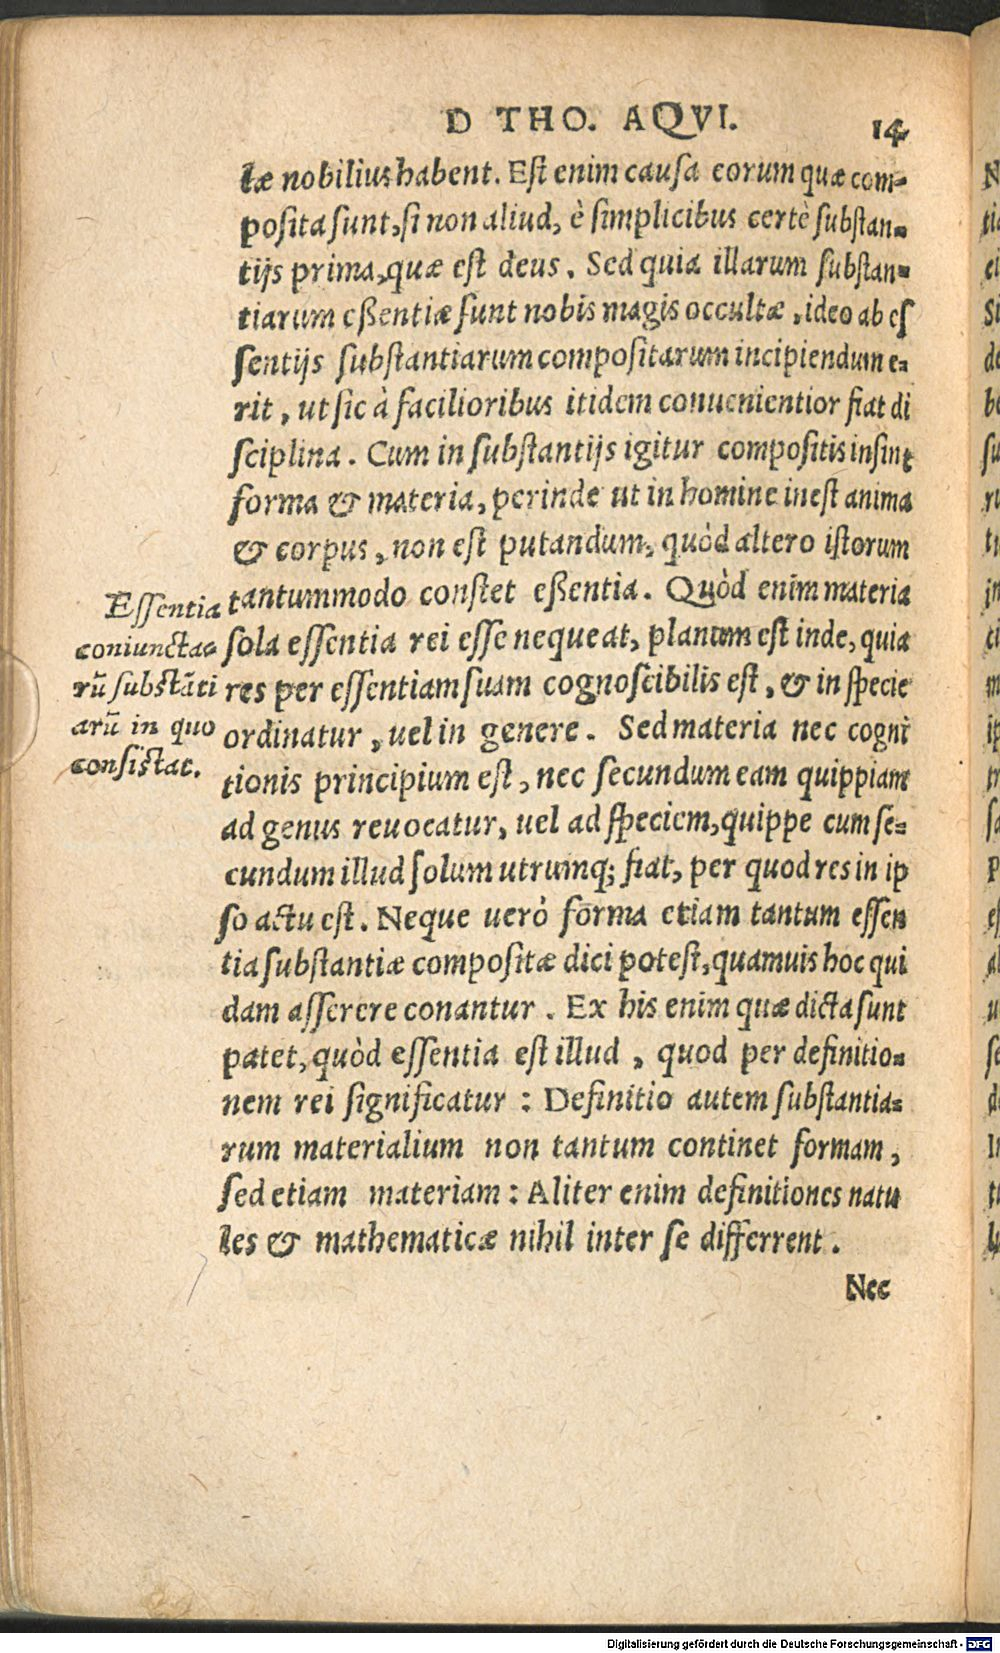 D THO. AQVI.
14
læ nobilius habent. Est enim causa eorum quæ com-
posita sunt, si non aliud, è simplicibus certè substan-
tijs prima, quæ est deus. Sed quia illarum substan-
tiarum eßentiæ sunt nobis magis occultæ, ideo ab es
sentijs substantiarum compositarum incipiendum e-
rit, ut sic à facilioribus itidem conuenientior fiat di
sciplina. Cum in substantijs igitur compositis insint
forma & materia, perinde ut in homine inest anima
& corpus, non est putandum, quòd altero istorum
tantummodo constet eßentia. Quòd enim materia
sola essentia rei esse nequeat, planum est inde, quia
res per essentiam suam cognoscibilis est, & in specie
ordinatur, uel in genere. Sed materia nec cogni
tionis principium est, nec secundum eam quippiam
ad genus reuocatur, uel ad speciem, quippe cum se-
cundum illud solum utrumq; fiat, per quod res in ip
so actu est. Neque uerò forma etiam tantum essen
tia substantiæ compositæ dici potest, quamuis hoc qui
dam asserere conantur. Ex his enim quæ dicta sunt
patet, quòd essentia est illud, quod per definitio-
nem rei significatur: Definitio autem substantia-
rum materialium non tantum continet formam,
sed etiam materiam: Aliter enim definitiones natu
les & mathematicæ nihil inter se differrent.
Nec
Essentia
coniunctaο
rũ substãti
arũ in quo
consistat.
Digitalisierung gefördert durch die Deutsche Forschungsgemeinschaft - DFG